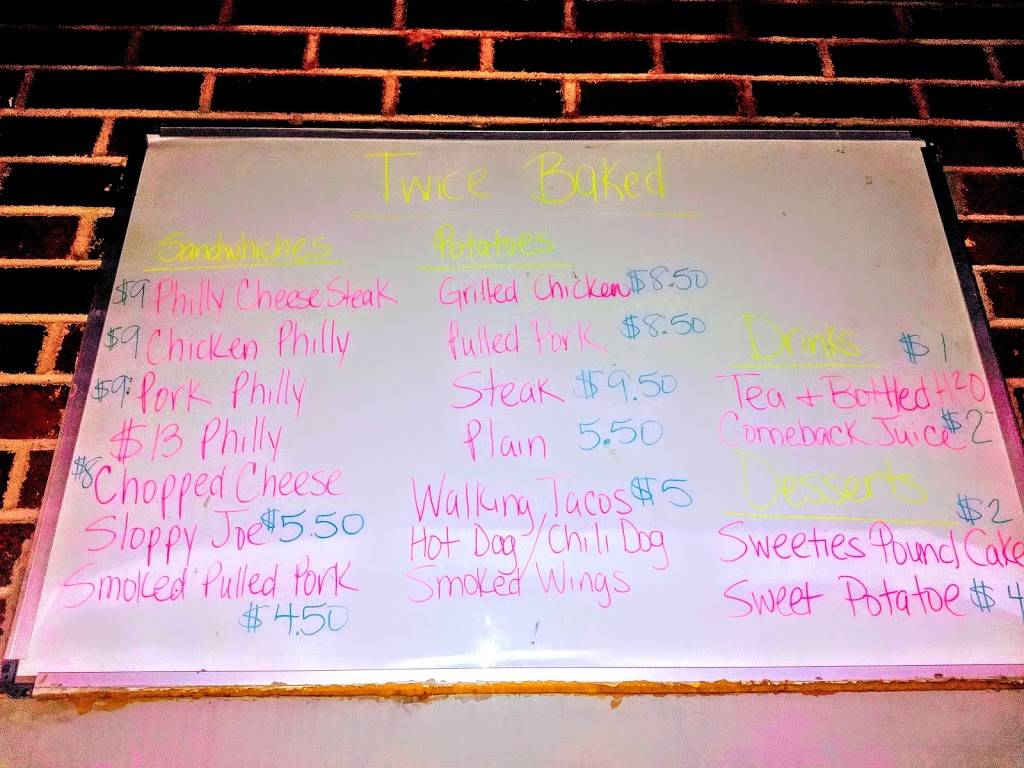 Twice Baked
Sandwhiches
$9 Philly Cheese Steak
$9 Chicken Philly
$9 Pork Philly
$13 Philly
$8 Chopped Cheese
Sloppy Joe $5.50
Smoked Pulled Pork
$4.50
Potatoes
Grilled Chicken $8.50
Pulled Pork $8.50
Steak $9.50
Plain 5.50
Walking Tacos $5
Hot Dog/Chili Dog
Smoked Wings
Drinks $1
Tea + Bottled H2O
Comeback Juice $2
Desserts
$2
Sweeties Pound Cake
Sweet Potatoe $4